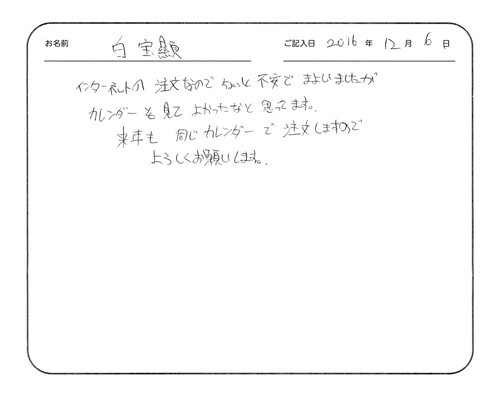 お名前 白宝顯 ご記入日 2016年 12月 6日
インターネットの 注文なので ちょっと 不安で まよいましたが
カレンダーを見て よかったなと 思ってます。
来年も 同じカレンダーで 注文しますので
よろしくお願いします。